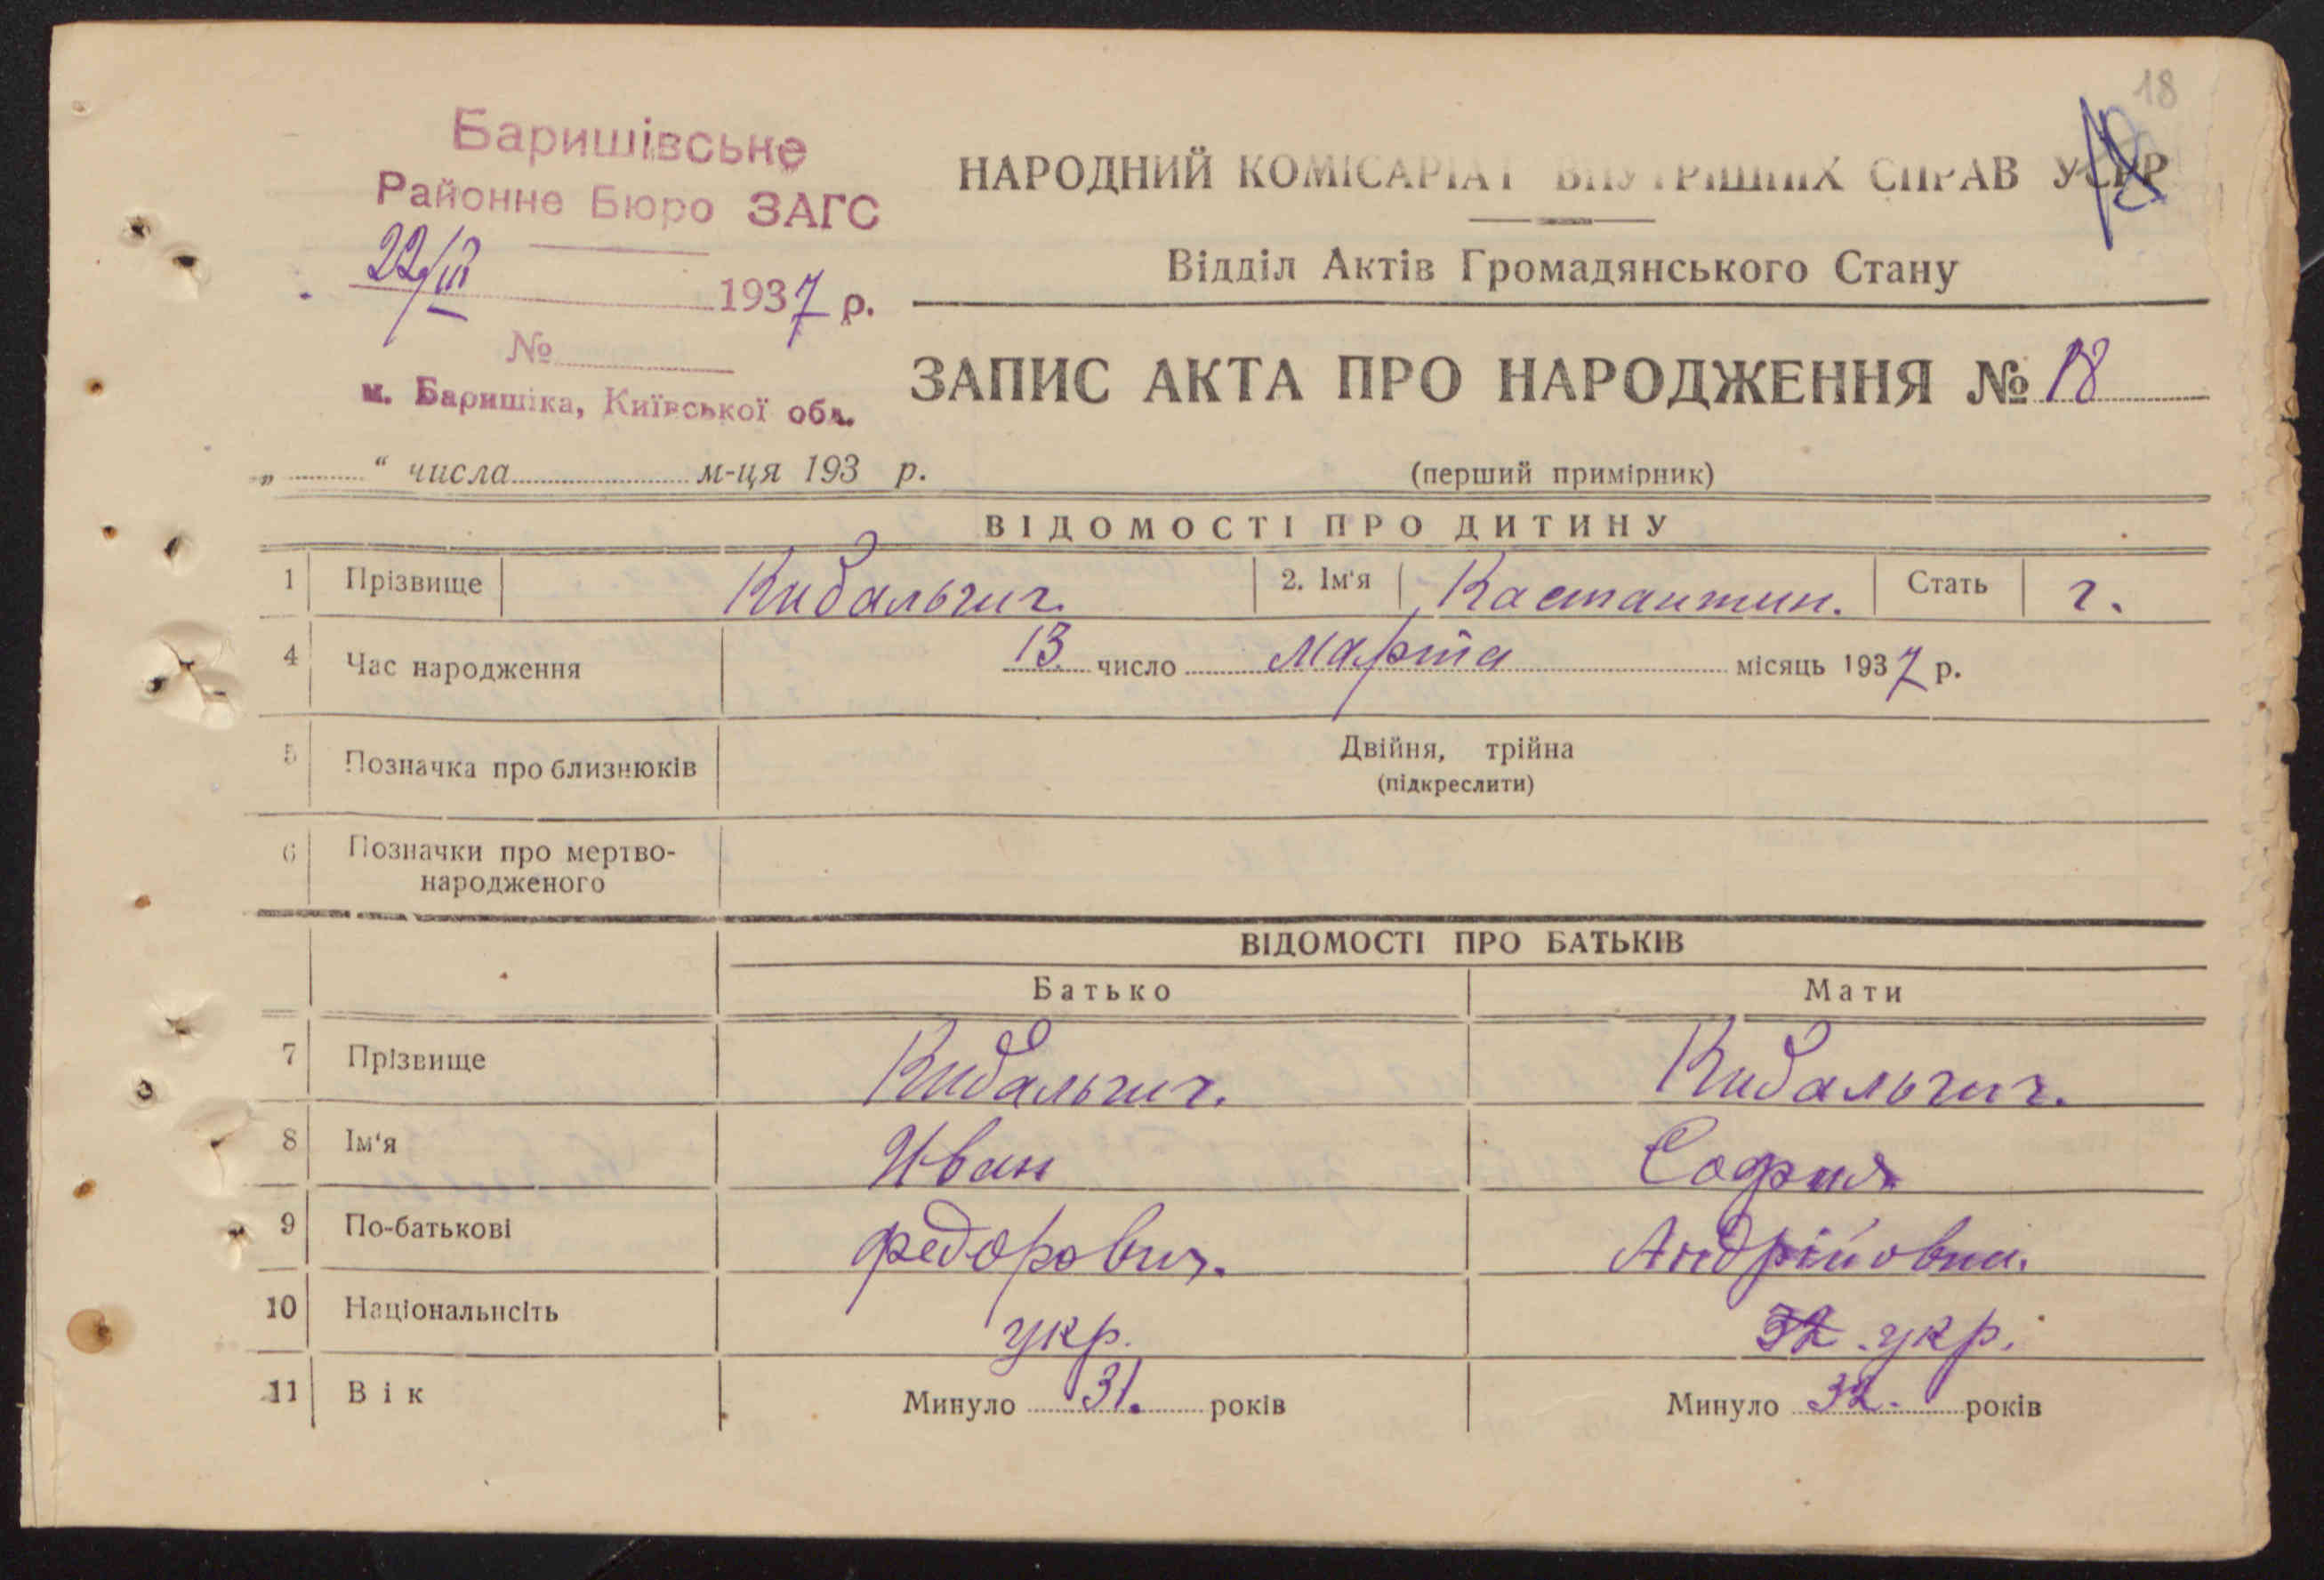 18
18
Баришівське
Районне Бюро ЗАГС
22/III 1937 р.
№
м. Баришівка, Київської обл.
НАРОДНИЙ КОМІСАРІАТ ВНУТРІШНІХ СПРАВ УСРР
Відділ Актів Громадянського Стану
ЗАПИС АКТА ПРО НАРОДЖЕННЯ № 18
„ “ числа м-ця 193 р.
(перший примірник)
ВІДОМОСТІ ПРО ДИТИНУ
1 Прізвище Кибальчич. 2. Ім'я Кастантин. Стать ч.
4 Час народження 13 число марта місяць 1937 р.
5 Позначка про близнюків Двійня, трійна
(підкреслити)
6 Позначки про мертво-
народженого
ВІДОМОСТІ ПРО БАТЬКІВ
Батько Мати
7 Прізвище Кибальчич. Кибальчич.
8 Ім'я Иван София
9 По-батькові Федорович. Андрійовна.
10 Національнсіть укр. 32 укр.
11 Вік Минуло 31. років Минуло 32. років